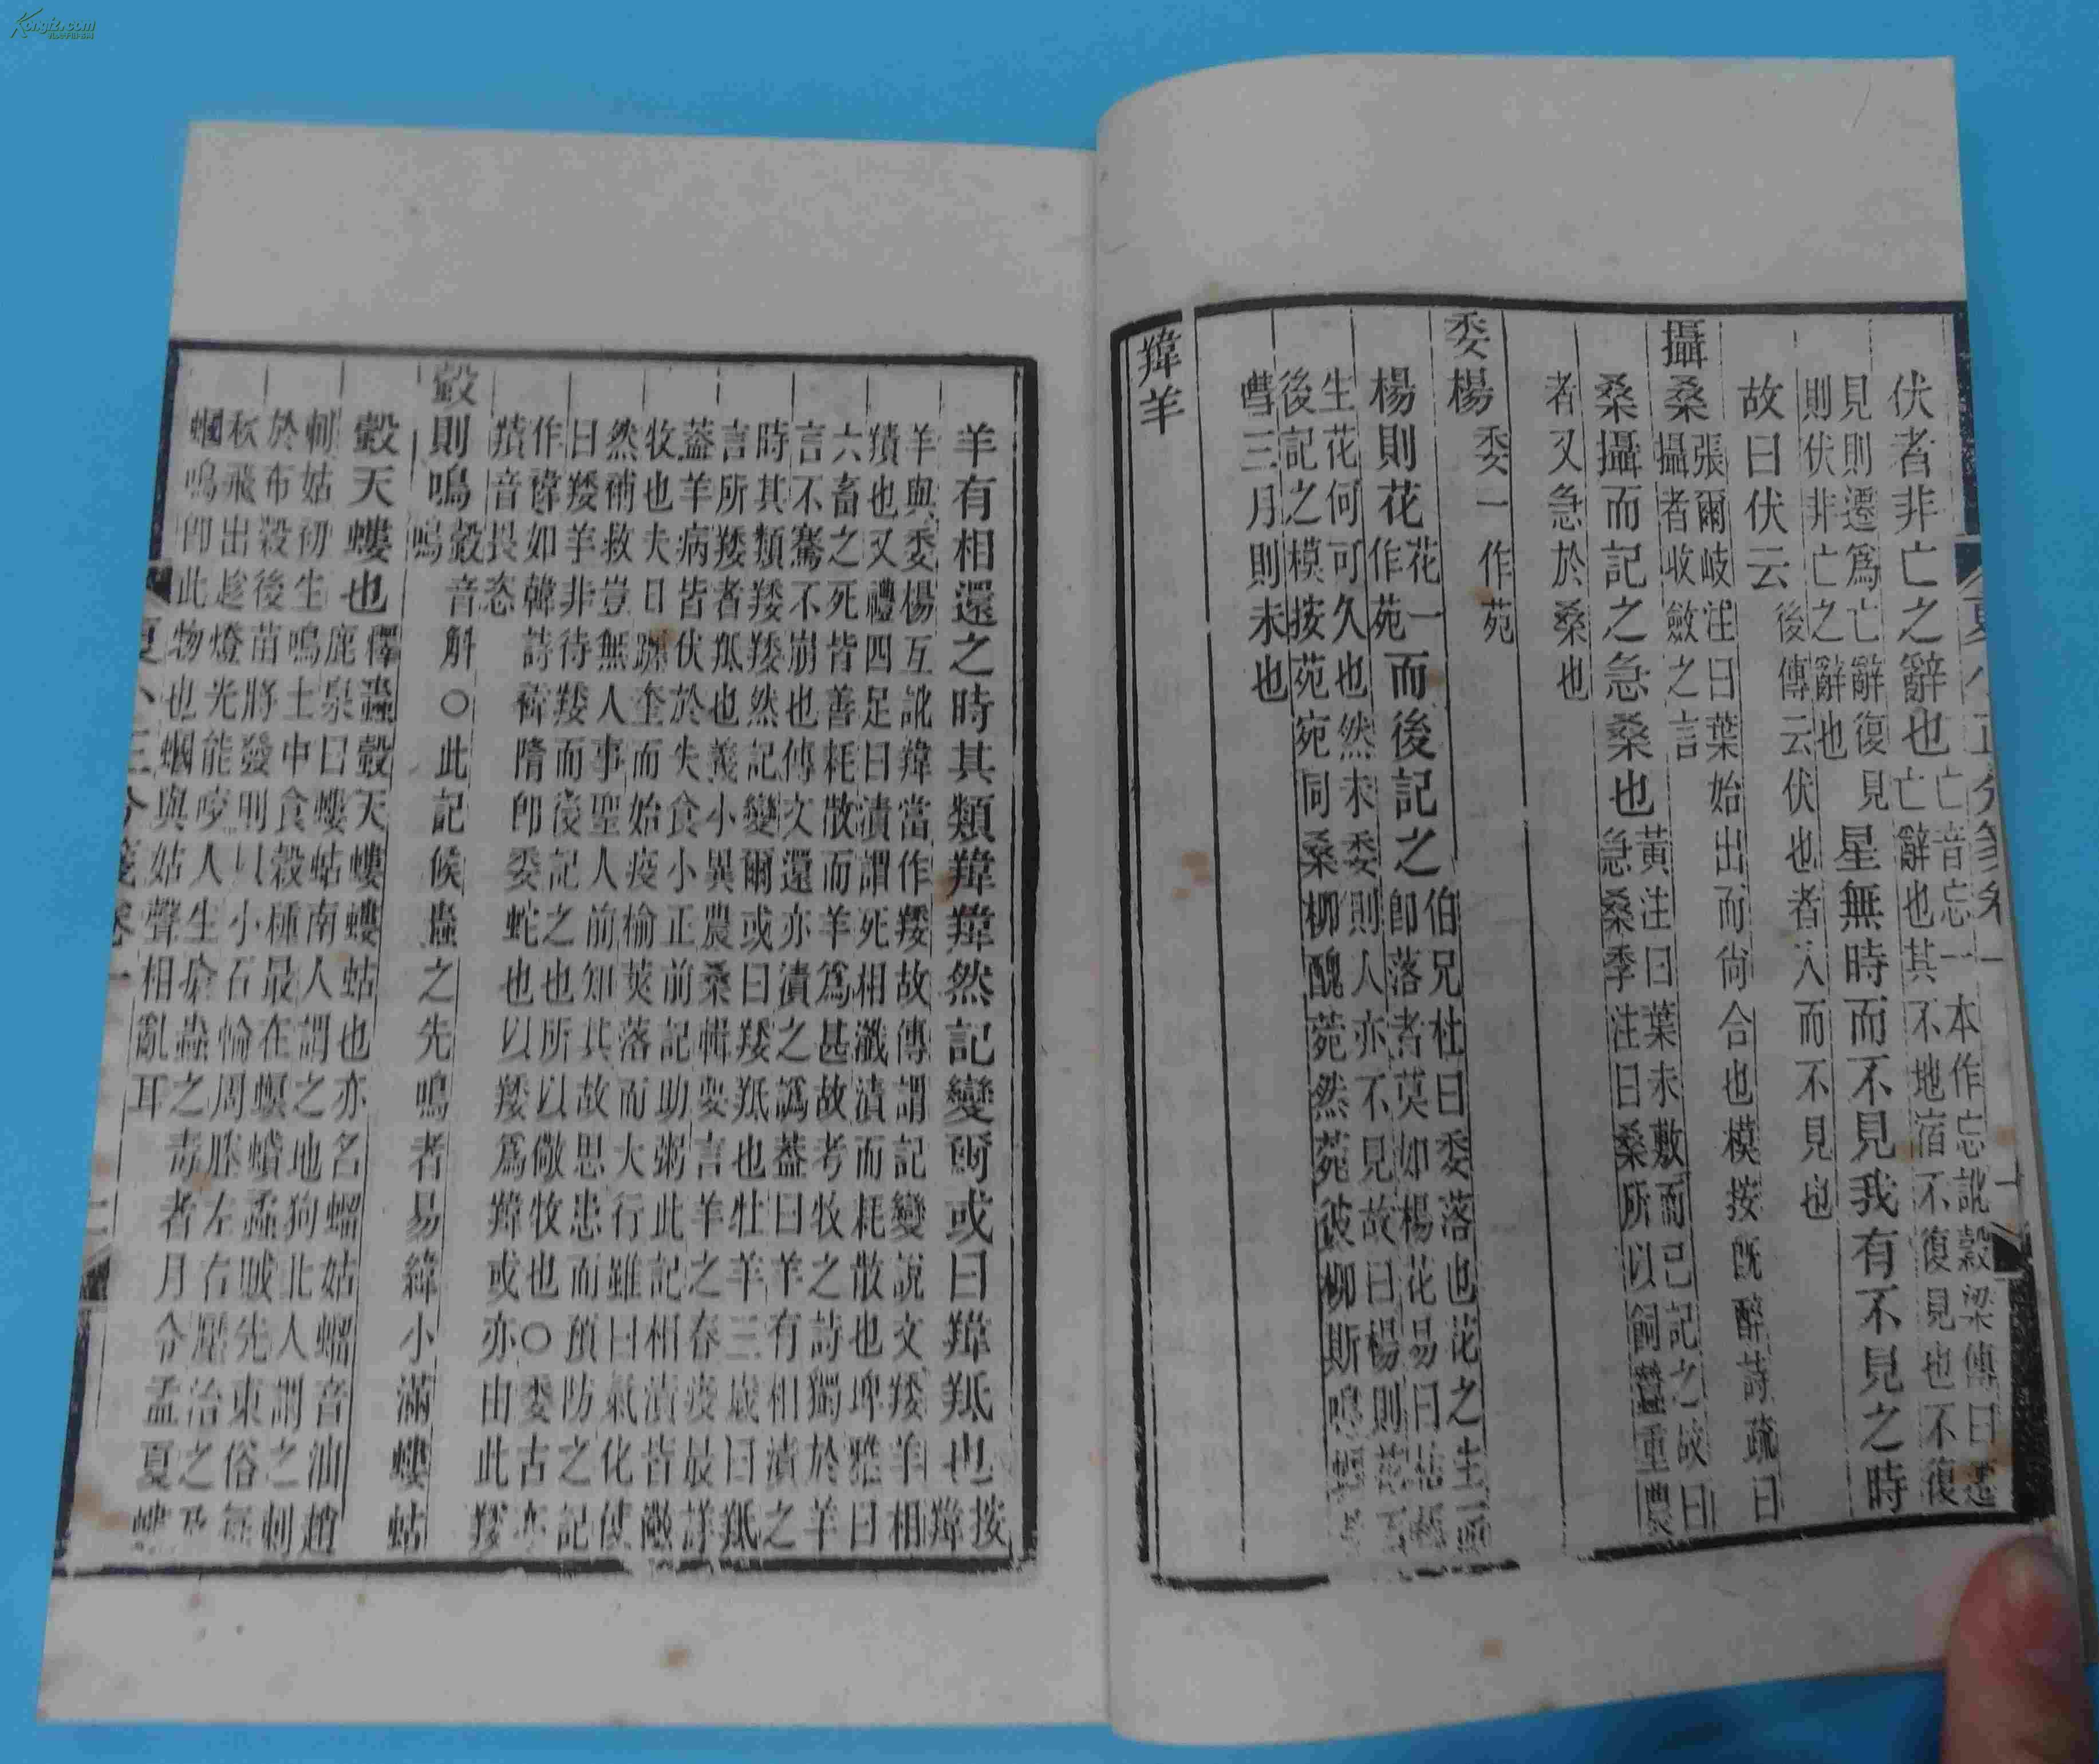 伏者非亡之辭也
亡音忘一本作忘訛穀梁傳曰
亡辭也其不地宿不復見也不復
見則遷爲亡辭復見
則伏非亡之辭也
星無時而不見我有不見之時
故曰伏云
後傳云伏也者入而不見也
攝桑
張爾岐注曰葉始出而尙合也模按旣醉詩疏曰
攝者收斂之言
桑攝而記之急桑也
黃注曰葉未敷而已記之故曰
急桑季注曰桑所以飼蠶重農
者又急於桑也
委楊
委一作苑
楊則花而後記之
花一
作苑
伯兄杜曰委落也花之生
卽落者莫如楊花易曰枯楊
生花何可久也然未委則人亦不見故曰楊則花而
後記之模按苑宛同桑柳醜菀然菀彼柳斯鳴
嘒三月則未也
羵羊
羊有相還之時其類羵羵然記變爾或曰羵羝也
按
羊與委楊互訛羵當作羠故傳謂記變說文羠羊相
羵也又禮四足曰漬謂死相瀸漬而耗散也埤雅曰
六畜之死皆善耗散而羊爲甚故考牧之詩獨於羊
言不騫不崩也傳文還亦漬之譌葢曰羊有相漬之
時其類羠羠然記變爾或曰羠羝也牡羊三歲曰羝
言所羠者羝也義小異農桑輯要言羊之春疫最詳
葢羊病皆伏於失食小正前記助粥此記相漬皆
牧也夫日躔奎而始疫榆莢落而大行雖曰氣化使
然補救豈無人事聖人前知其故思患而預防之記
曰羠羊非待羠而後記之也所以儆牧也○委古
作禕如韓詩禕隋卽委蛇也以羠爲羵或亦由此
羵音畏恣
縠則鳴
縠音斛○此記候蟲之先鳴者易緯小滿螻蛄
鳴
縠天螻也
釋蟲縠天螻螻蛄也亦名蝒姑蝒音汕趙
鹿泉曰螻蛄南人謂之地狗北人謂之刺
刺姑初生鳴土中食穀種最在螟蟘蟊賊先東俗每
於布穀後苗將發則以小石輪周胝左右壓治之
秋飛出趁燈光能咬人生瘡蟲之毒者月令孟夏螻
蟈鳴卽此物也蟈與姑聲相亂耳